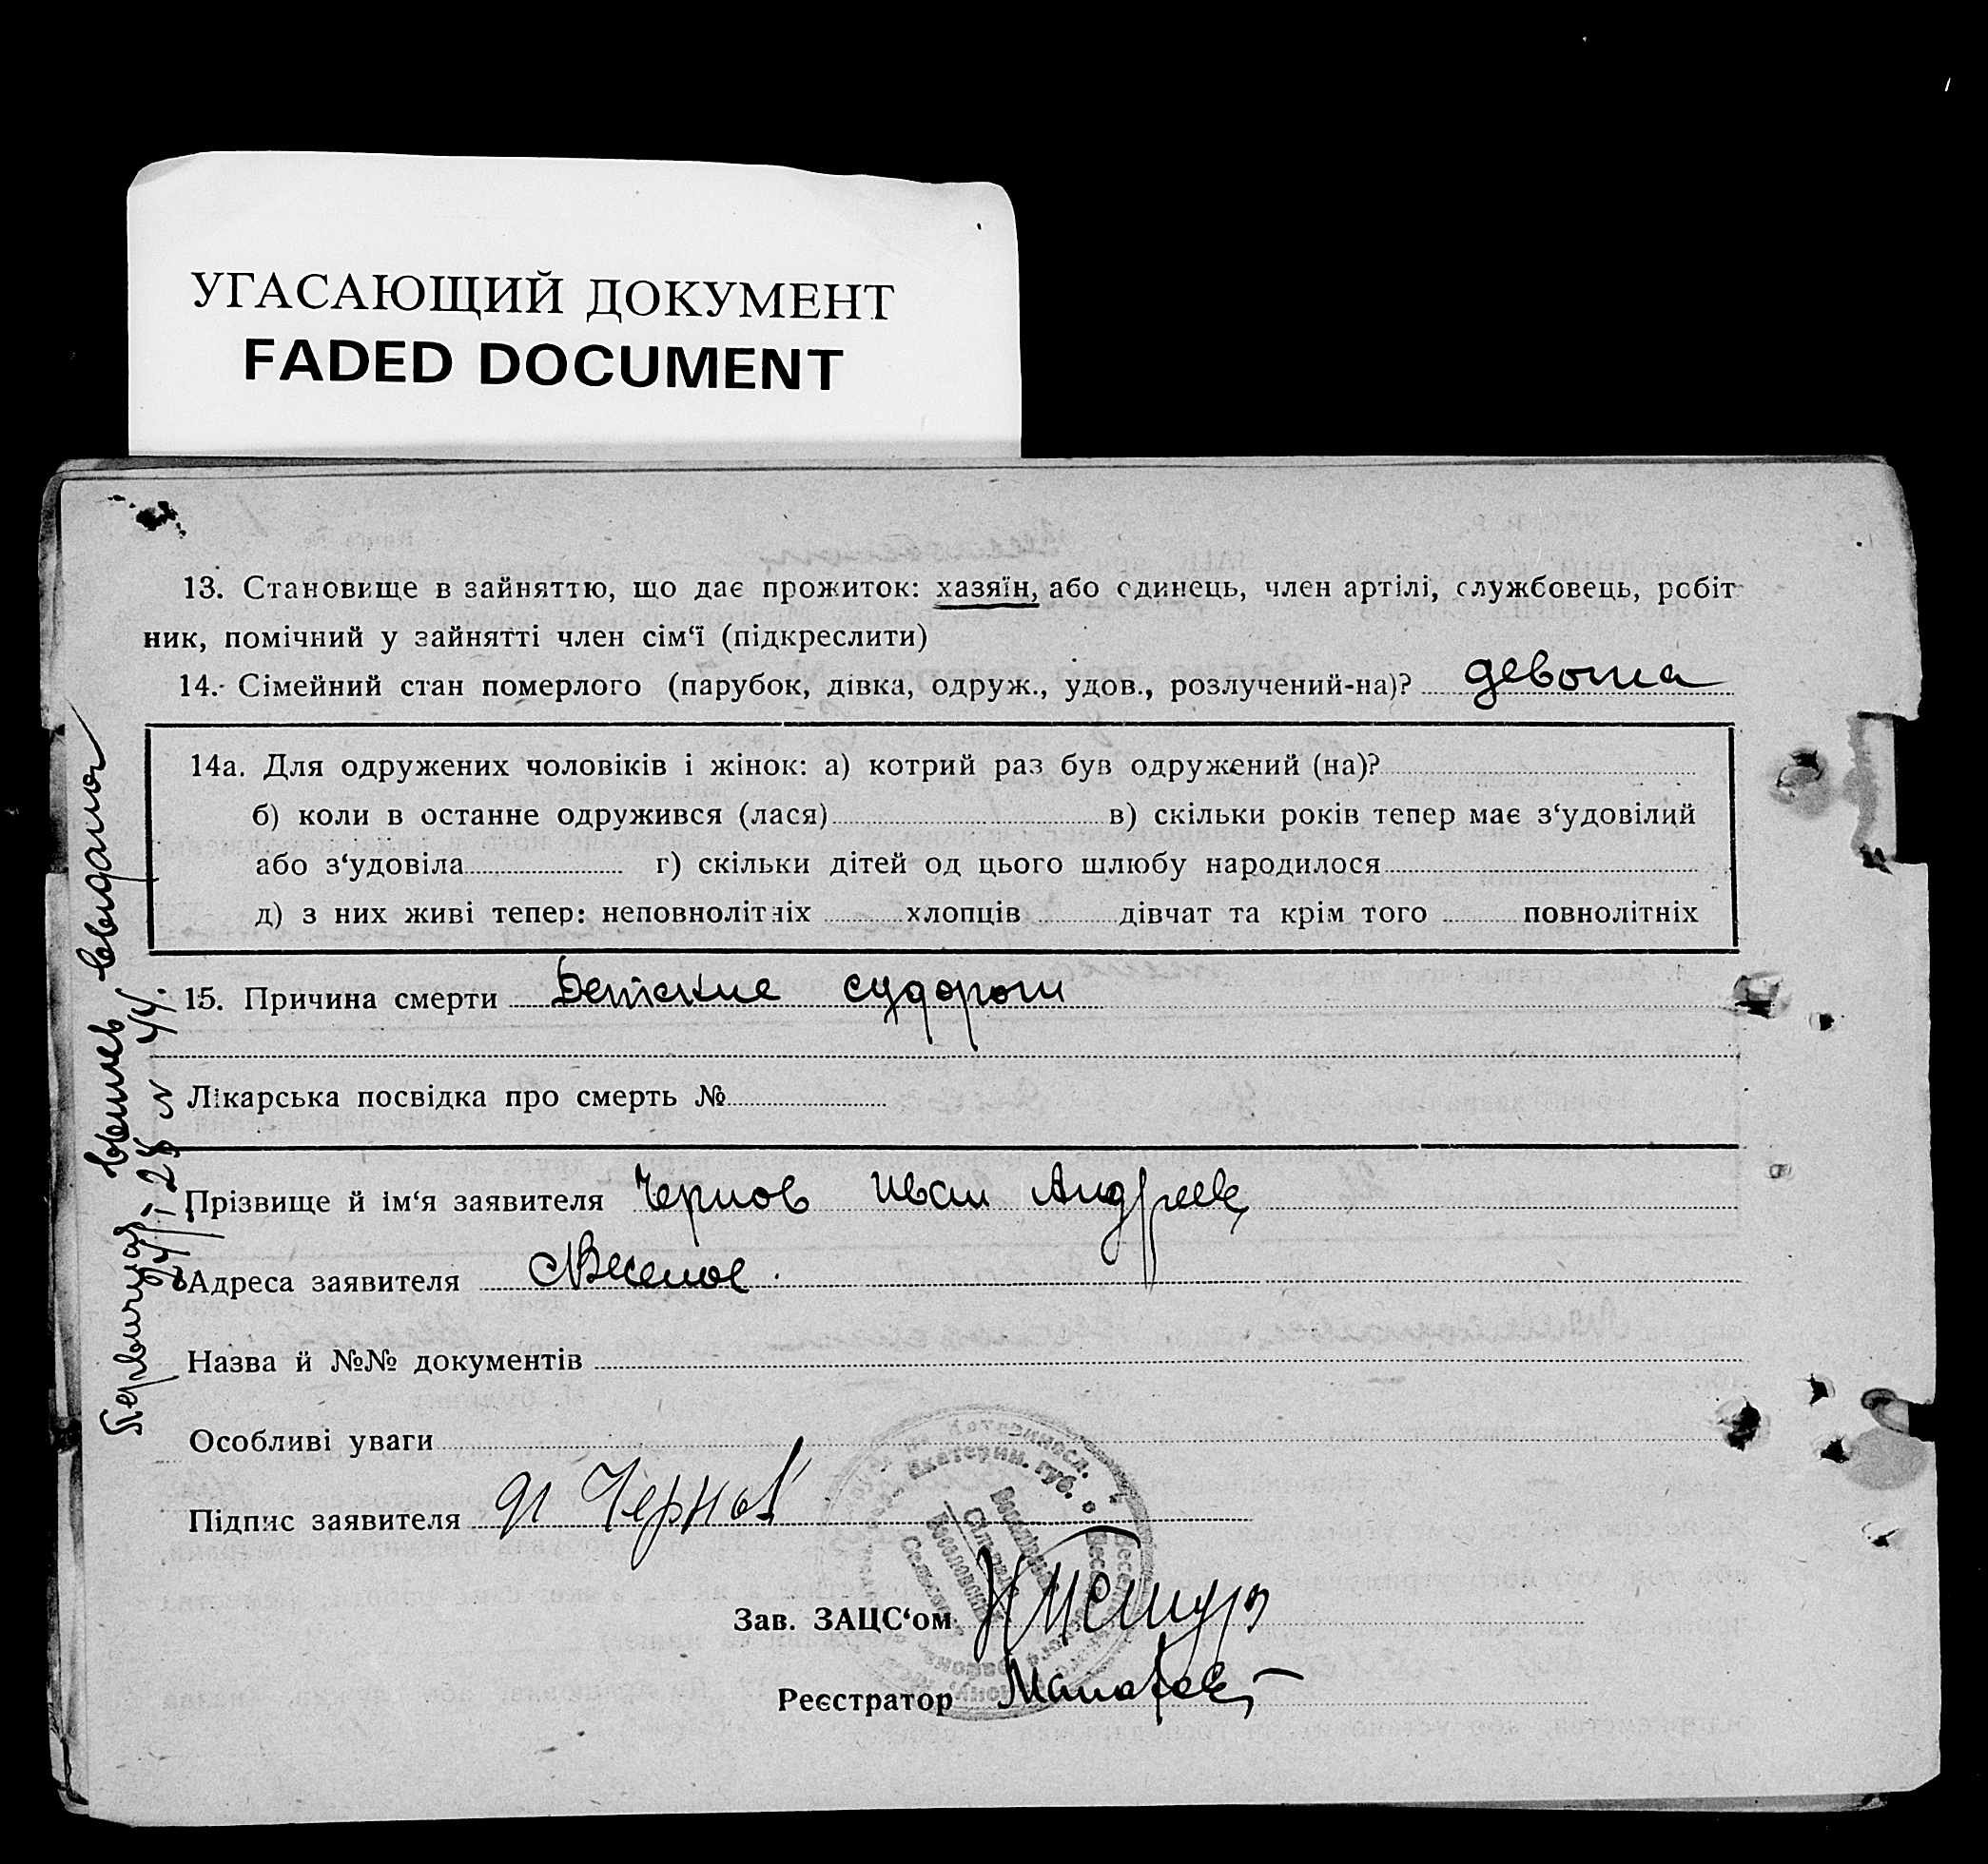 УГАСАЮЩИЙ ДОКУМЕНТ
FADED DOCUMENT
13. Становище в зайняттю, що дає прожиток: хазяїн, або єдинець, член артілі, службовець, робіт
ник, помічний у зайнятті член сім‘ї (підкреслити)
14. Сімейний стан померлого (парубок, дівка, одруж., удов., розлучений-на)?
14а. Для одружених чоловіків і жінок: а) котрий раз був одружений (на)?
б) коли в останне одружився (лася) в) скільки років тепер має з‘удовілий
або з‘удовіла г) скільки дітей од цього шлюбу народилося
д) з них живі тепер: неповнолітніх хлопців дівчат та крім того повнолітніх
15. Причина смерти Детские судороги
Лікарська посвідка про смерть №
Прізвище й ім‘я заявителя Чернов Иван Андреев
Адреса заявителя Веселое
Назва й №№ документів
Особливі уваги
Підпис заявителя Чернов
Зав. ЗАЦС‘ом
Реєстратор
Первичная выпись выдана
28 N 44
Катериносл.
Екатерин. губ.